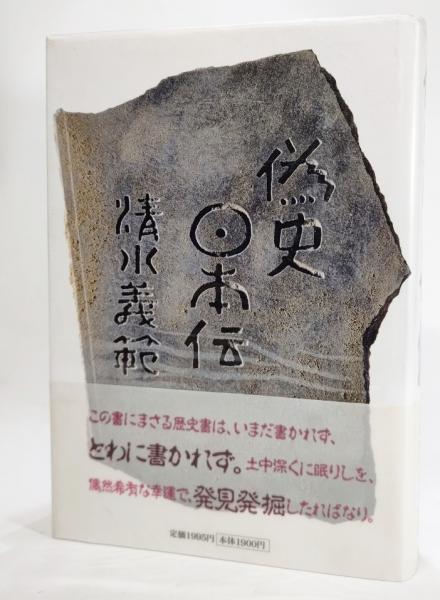 偽史
日本伝
清水義範
この書にまさる歴史書は、いまだ書かれず、
とわに書かれず。土中深くに眠りしを、
偶然希有な幸運で、発見発掘したればなり。
定価1995円 本体1900円